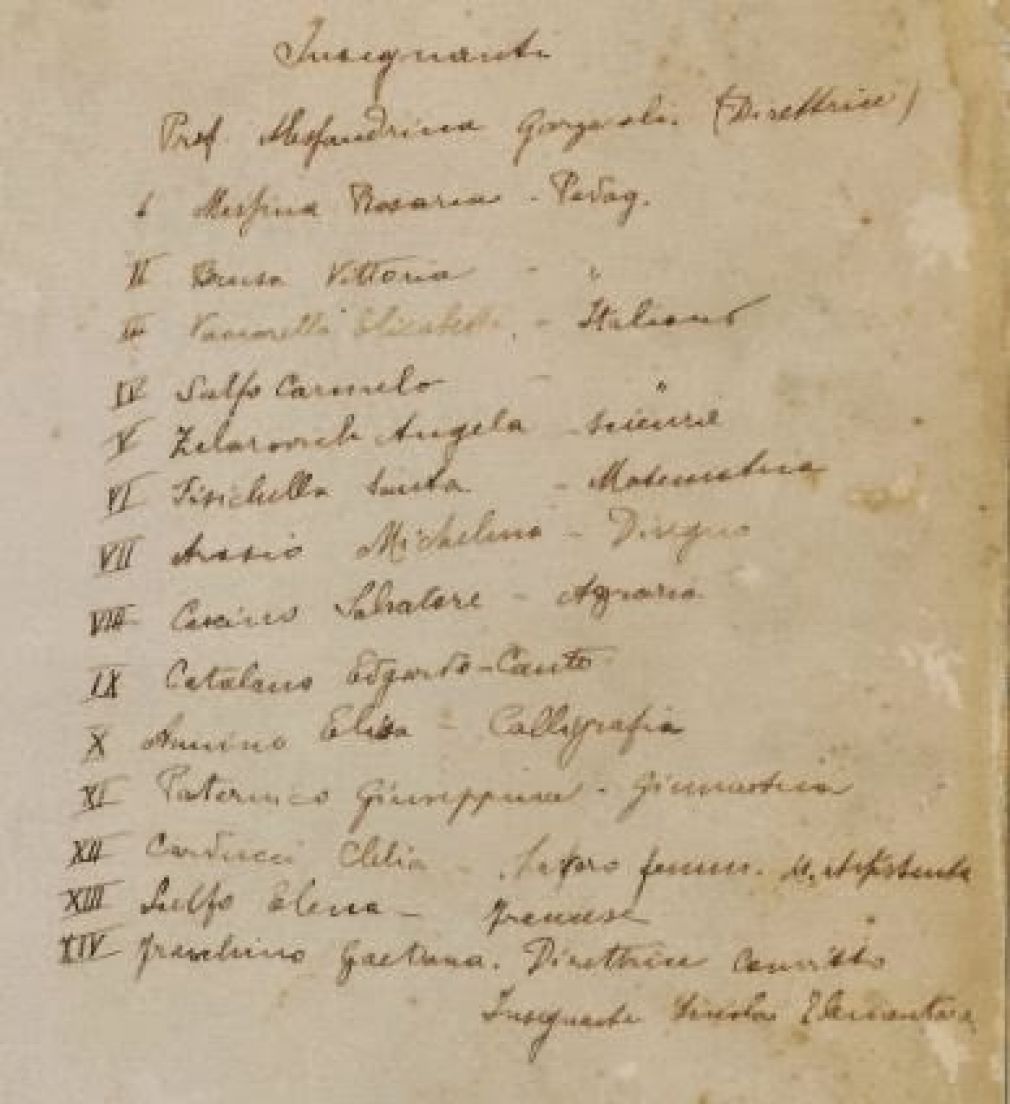 Insegnanti
Prof. Alessandrina (Direttrice)
I Messina Rosaria - Pedag.
II Bruso Vittoria - "
III Vaccarella Elisabetta - Italiano
IV Salfo Carmelo - "
V Angela - Scienze
VI Fisichella Santa - Matematica
VII Michelina - Disegno
VIII Salvatore - Agraria
IX Catalano Edgardo - Canto
X Elisa - Calligrafia
XI Paternico Giuseppina - Ginnastica
XII Carducci Clelia - Lavoro femm. M. Assistente
XIII Salfo Elena - Francese
XIV Gaetana. Direttrice Convitto
Insegnante Scuola Elementare